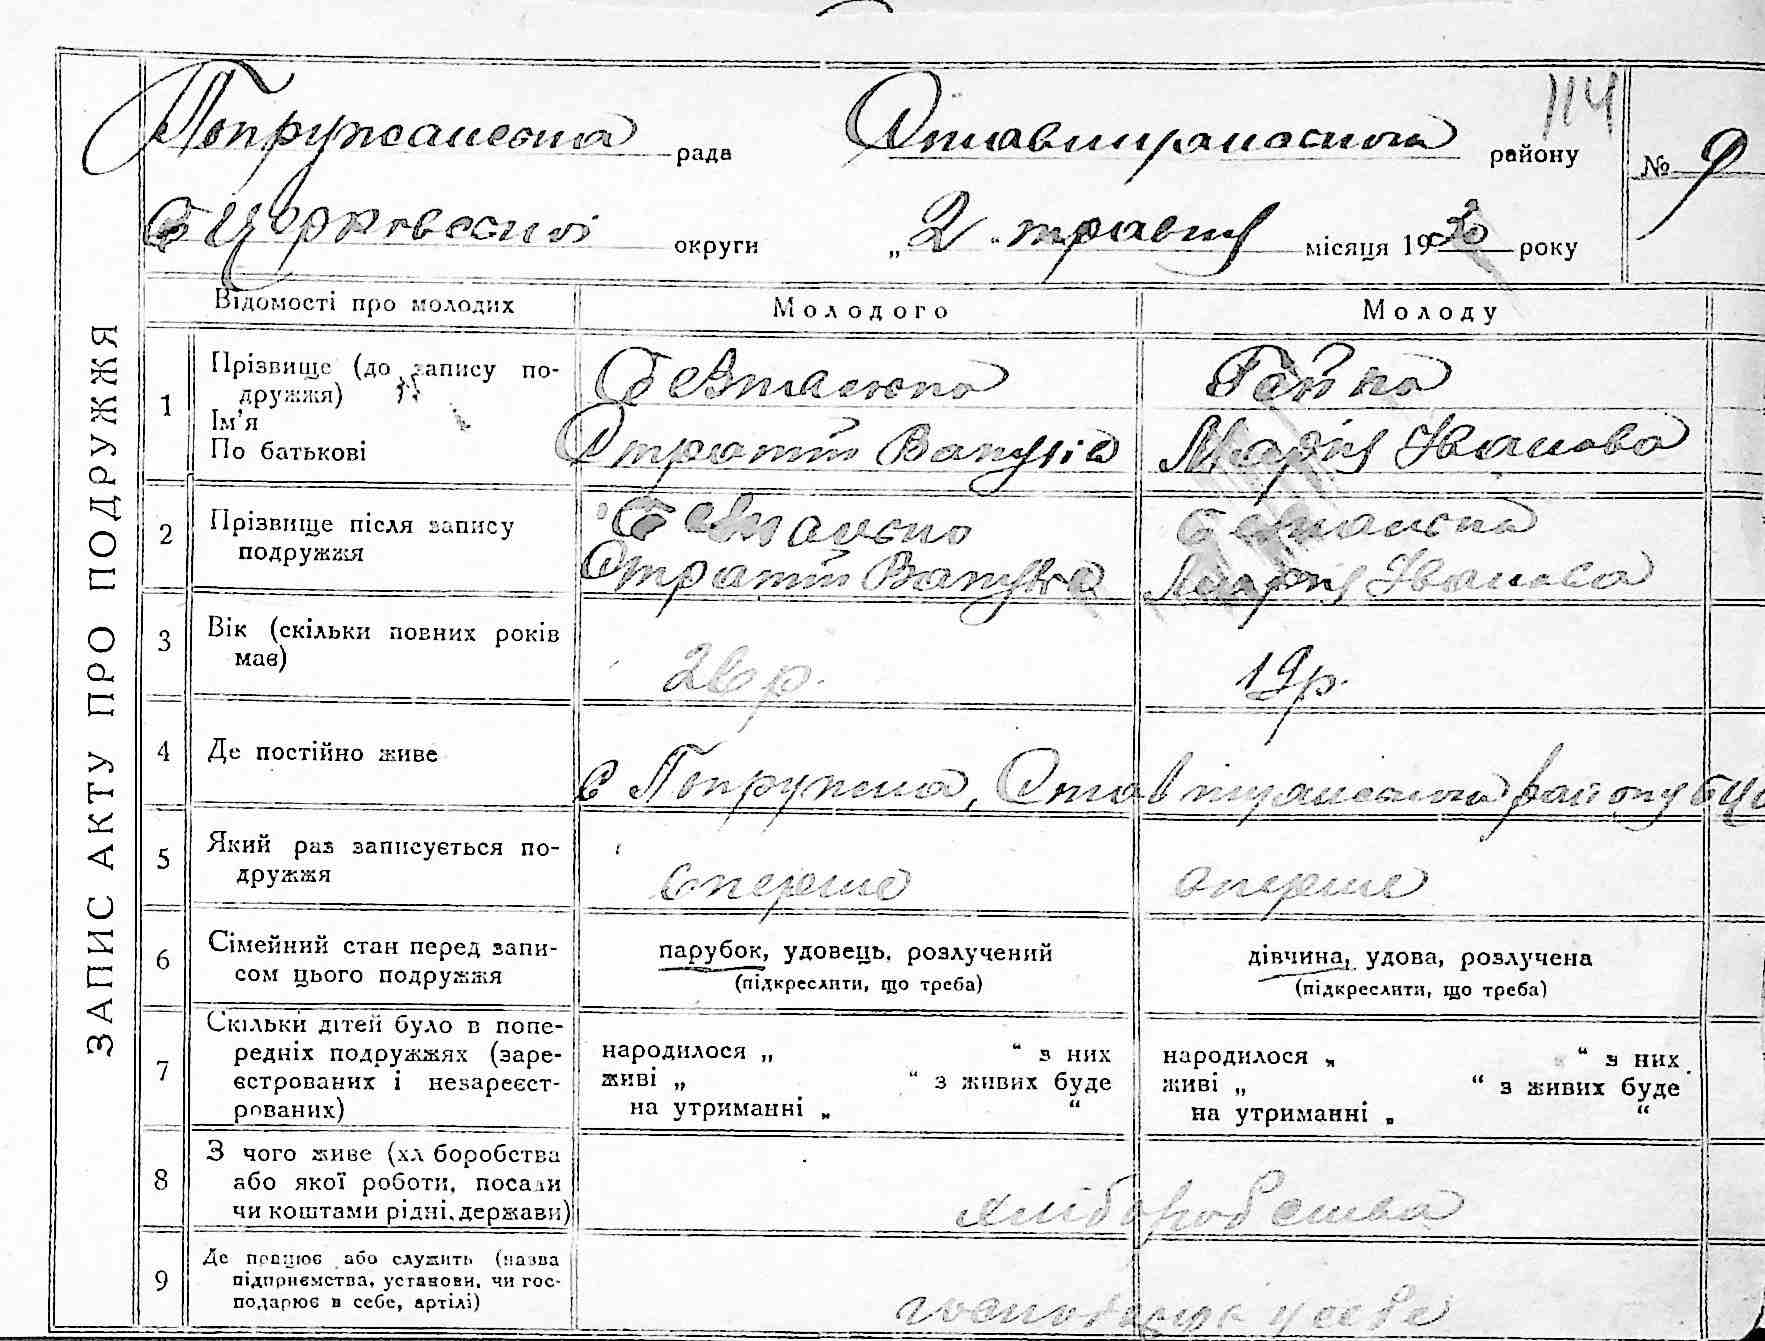 114
Попружанська рада Ставищанського району № 9
БЦерковської округи „ 2 “ травня місяця 1930 року
ЗАПИС АКТУ ПРО ПОДРУЖЖЯ
Відомості про молодих Молодого Молоду
1 Прізвище (до запису по-
дружжя)
Ім’я
По батькові
Безталюно
Стратій
Гейко
Марія Іванова
2 Прізвище після запису
подружжя
Стратій
Марія Іванова
3 Вік (скільки повних років
має)
26 р. 19 р.
4 Де постійно живе
с Попружна, Ставищанського району БЦ
5 Який раз записується по-
дружжя
вперше вперше
6 Сімейний стан перед запи-
сом цього подружжя
парубок, удовець, розлучений
(підкреслити, що треба)
дівчина, удова, розлучена
(підкреслити, що треба)
7 Скільки дітей було в попе-
редніх подружжях (заре-
єстрованих і незареєст-
рованих)
народилося „ “ з них
живі „ “ з живих буде
на утриманні „ “
народилося „ “ з них
живі „ “ з живих буде
на утриманні „ “
8 З чого живе (хл боробства
або якої роботи, посади
чи коштами рідні, держави)
хліборобства
9 Де працює або служить (назва
підприємства, установи, чи гос-
подарює в себе, артілі)
господарює у себе